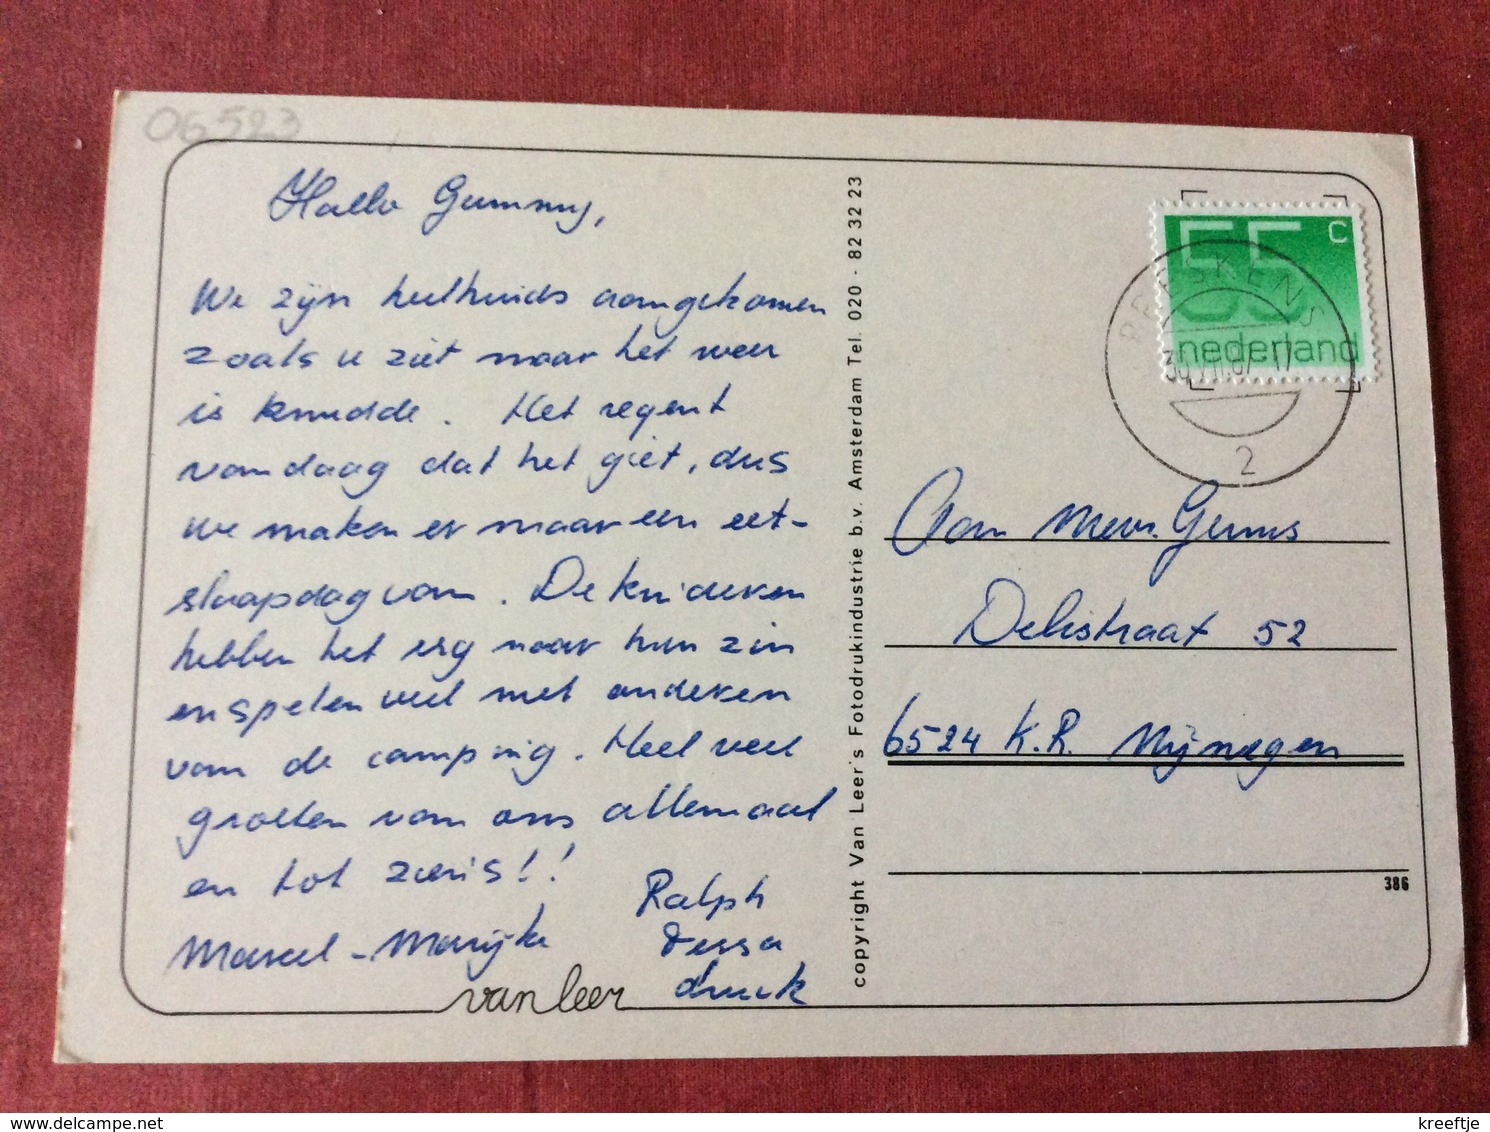 06523
Hallo Gummy,
We zijn heelhuids aangekomen
zoals u ziet maar het weer
is knudde. Het regent
vandaag dat het giet, dus
we maken er maar een eet-
slaapdag van. De kinderen
hebben het erg naar hun zin
en spelen veel met anderen
van de camping. Heel veel
groeten van ons allemaal
en tot ziens!!
Marcel - Marijke
Ralph
Tessa
van leer
copyright Van Leer's Fotodrukindustrie b.v. Amsterdam Tel. 020 - 82 32 23
55 c
nederland
BRESKENS
2
Aan Mevr. Gums
Delistraat 52
6524 K.R. Nijmegen
386
kreeftje